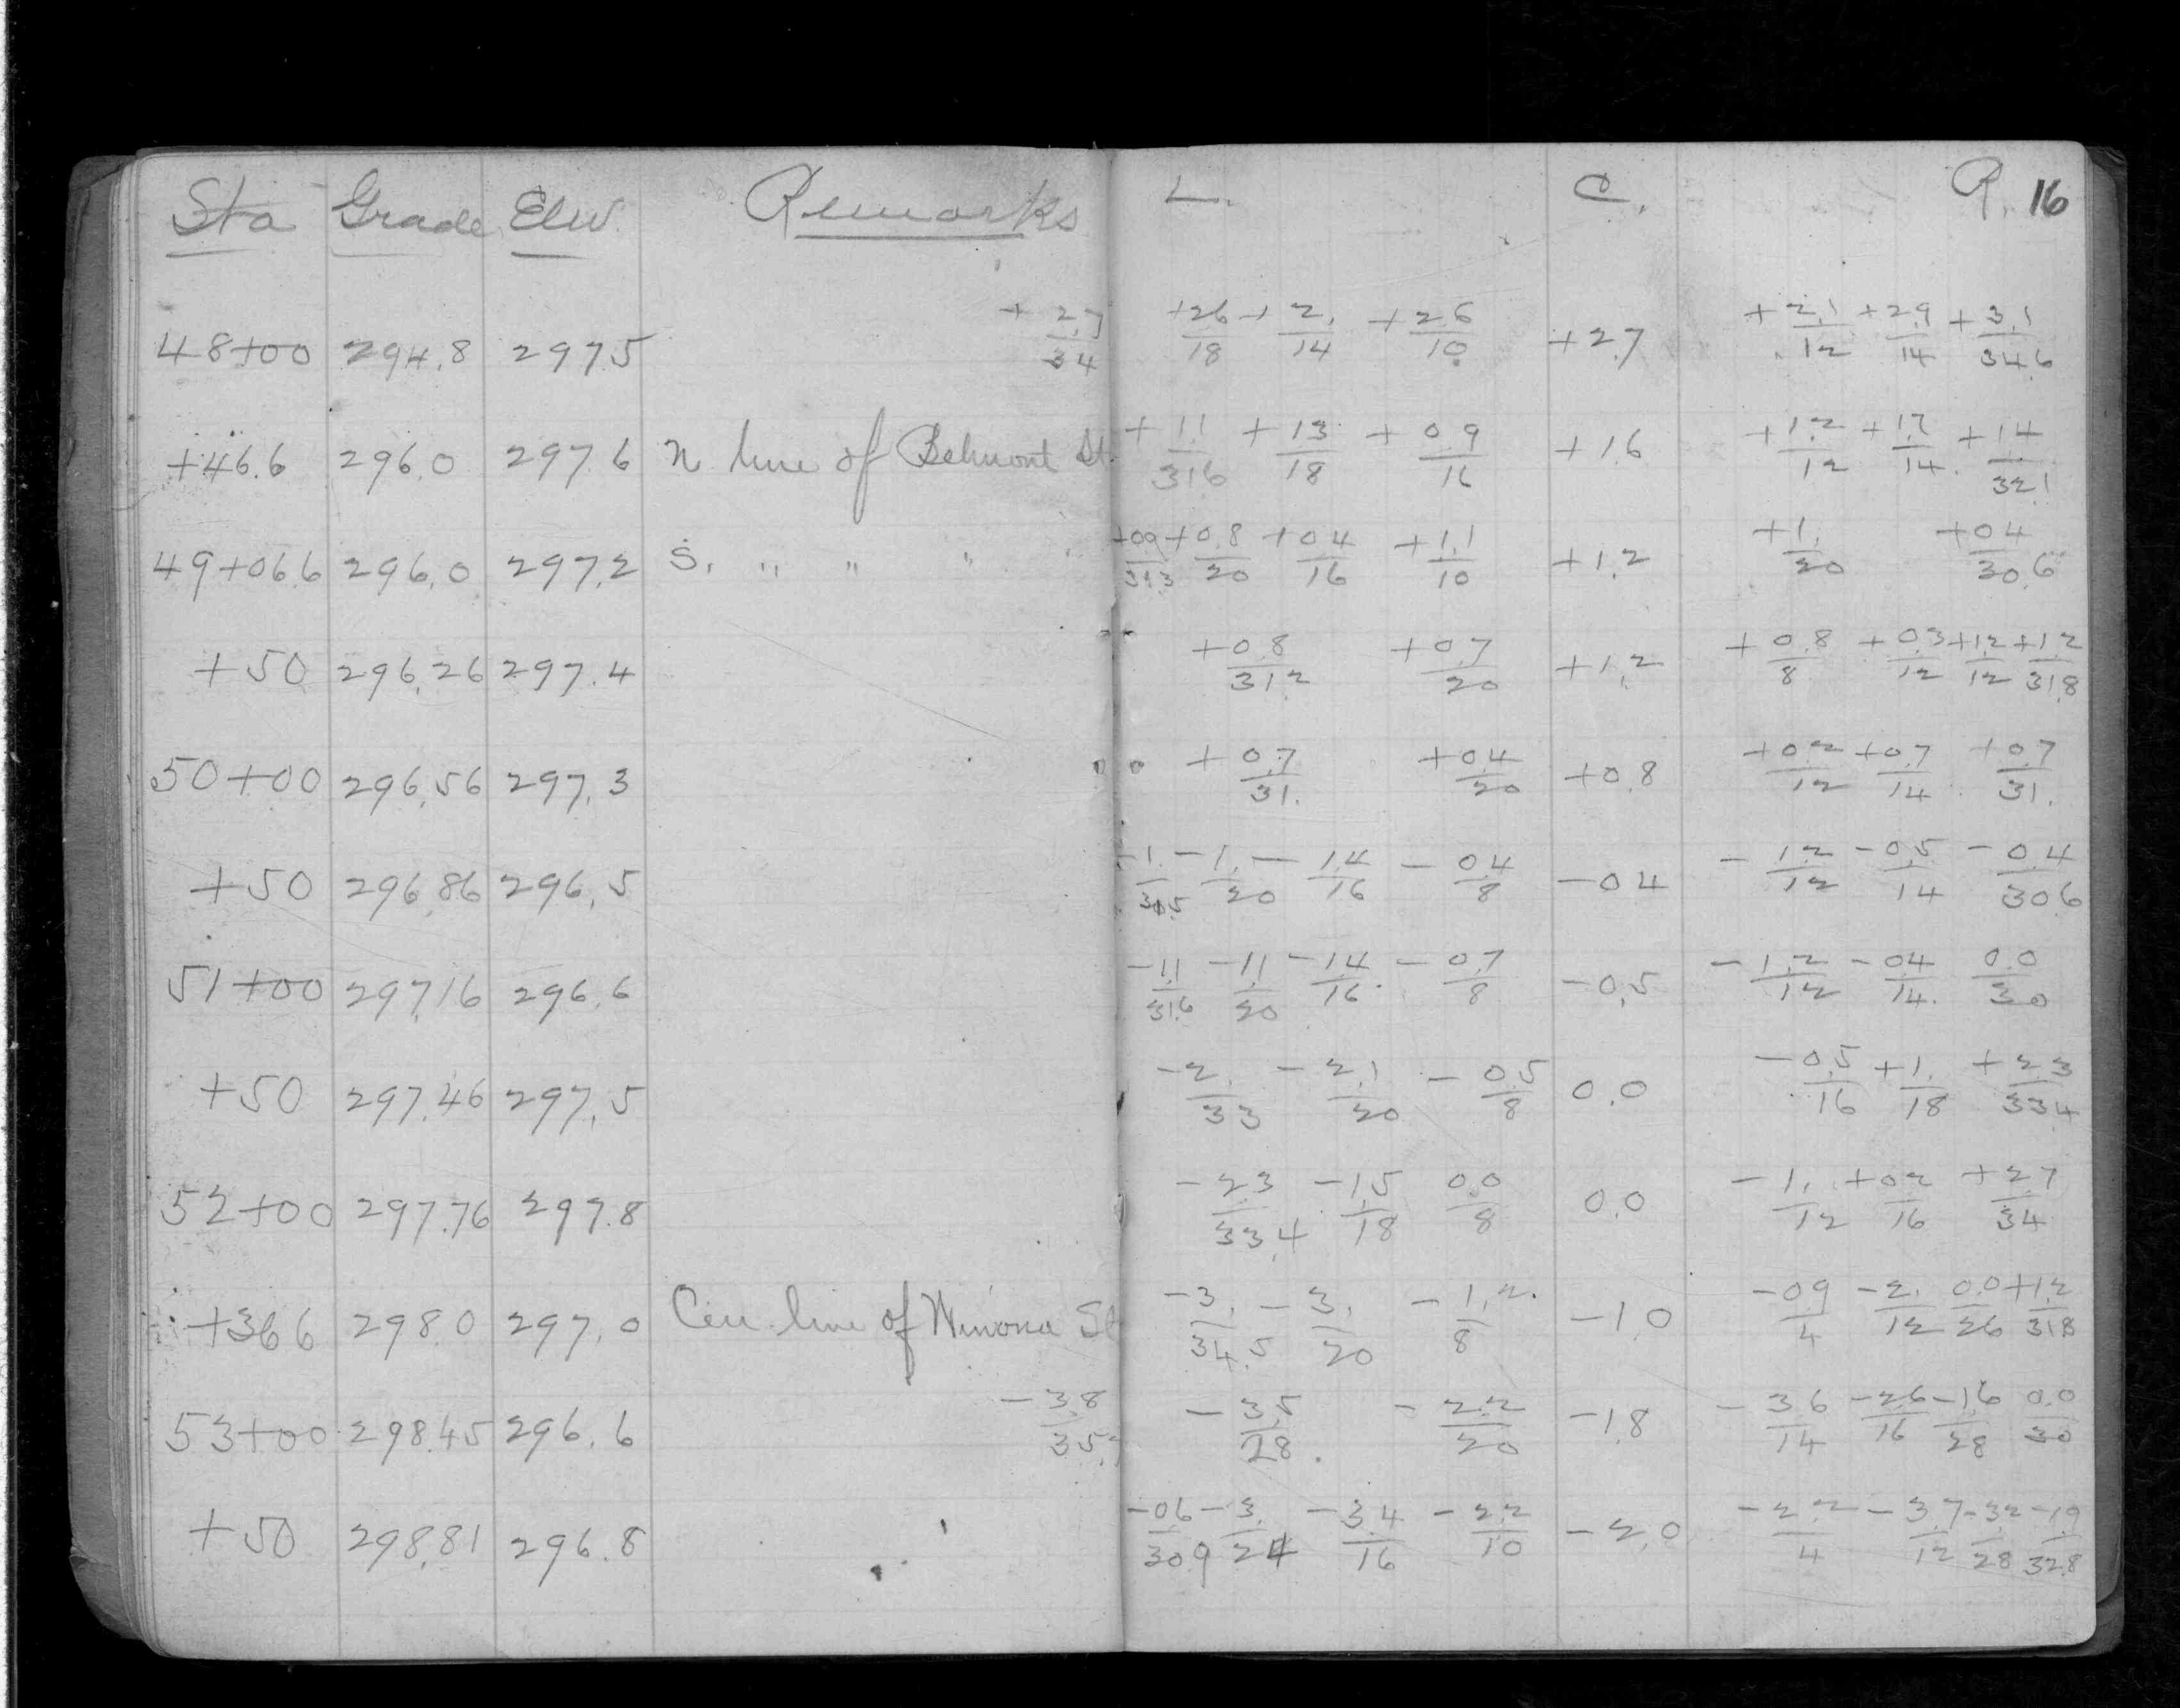 Sta Grade Elev. Remarks L. C. R. 16
48+00 294.8 297.5 +2.7/34 +2.6/18 +2./14 +2.6/10 +2.7 +2.1/12 +2.9/14 +3.1/34.6
+46.6 296.0 297.6 N line of Belmont St. +1.1/31.6 +1.3/18 +0.9/16 +1.6 +1.2/12 +1.7/14 +1.4/32.1
49+06.6 296.0 297.2 S. " " " " +0.9/31.3 +0.8/20 +0.4/16 +1.1/10 +1.2 +1./20 +0.4/30.6
+50 296.26 297.4 +0.8/31.2 +0.7/20 +1.2 +0.8/8 +0.3/12 +1.2/12 +1.2/31.8
50+00 296.56 297.3 +0.7/31. +0.4/20 +0.8 +0.2/12 +0.7/14 +0.7/31.
+50 296.86 296.5 -1./30.5 -1./20 -1.4/16 -0.4/8 -0.4 -1.2/12 -0.5/14 -0.4/30.6
51+00 297.16 296.6 -1.1/31.6 -1.1/20 -1.4/16 -0.7/8 -0.5 -1.2/12 -0.4/14 0.0/30
+50 297.46 297.5 -2./33 -2.1/20 -0.5/8 0.0 -0.5/16 +1./18 +2.3/33.4
52+00 297.76 297.8 -2.3/33.4 -1.5/18 0.0/8 0.0 -1./12 +0.2/16 +2.7/34
+36.6 298.0 297.0 Cen. line of Winona St -3./34.5 -3./20 -1.2/8 -1.0 -0.9/4 -2./12 0.0/26 +1.2/31.8
53+00 298.45 296.6 -3.8/35.7 -3.5/28 -2.2/20 -1.8 -3.6/14 -2.6/16 -1.6/28 0.0/30
+50 298.81 296.8 -0.6/30.9 -3./24 -3.4/16 -2.2/10 -2.0 -2.2/4 -3.7/12 -3.2/28 -1.9/32.8